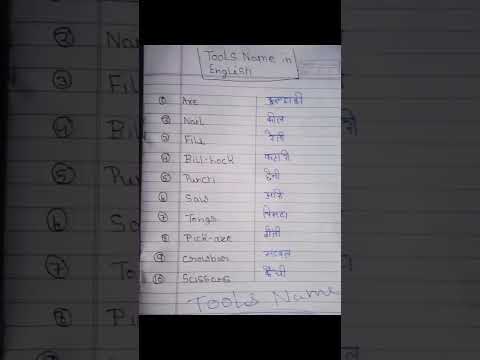 Tools Name in
English
① Axe कुल्हाडी
② Nail कील
③ File रेती
④ Bill-hook
⑤ Punch छैनी
⑥ Saw आरी
⑦ Tongs चिमटा
⑧ Pick-axe गैंती
⑨ Crowbar सब्बल
⑩ Scissors कैंची
Tools Name